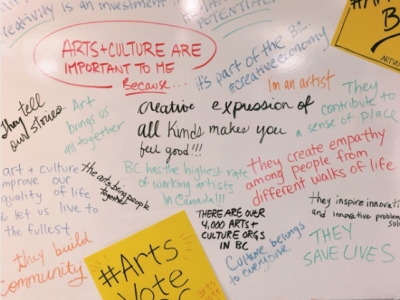 Creativity is an investment
POTENTIAL
ARTS+CULTURE ARE
IMPORTANT TO ME
Because...
it's part of the
#creative economy
#A
B
ARTV
They tell
our stories
Art
brings us
all together
creative expression of
all kinds makes you
feel good!!!
I'm an artist
They
contribute to
a sense of place
art + culture
improve our
quality of life
& let us live to
the fullest
the arts bring people
together
BC has the highest rate
of working artists
in Canada!!!
They create empathy
among people from
different walks of life
THERE ARE OVER
4,000 ARTS+
CULTURE ORGS
IN BC
they inspire innovati
and innovative problem
sol
They build
community
#Arts
Vote
BC
Culture belongs
to everyone
THEY
SAVE LIVES